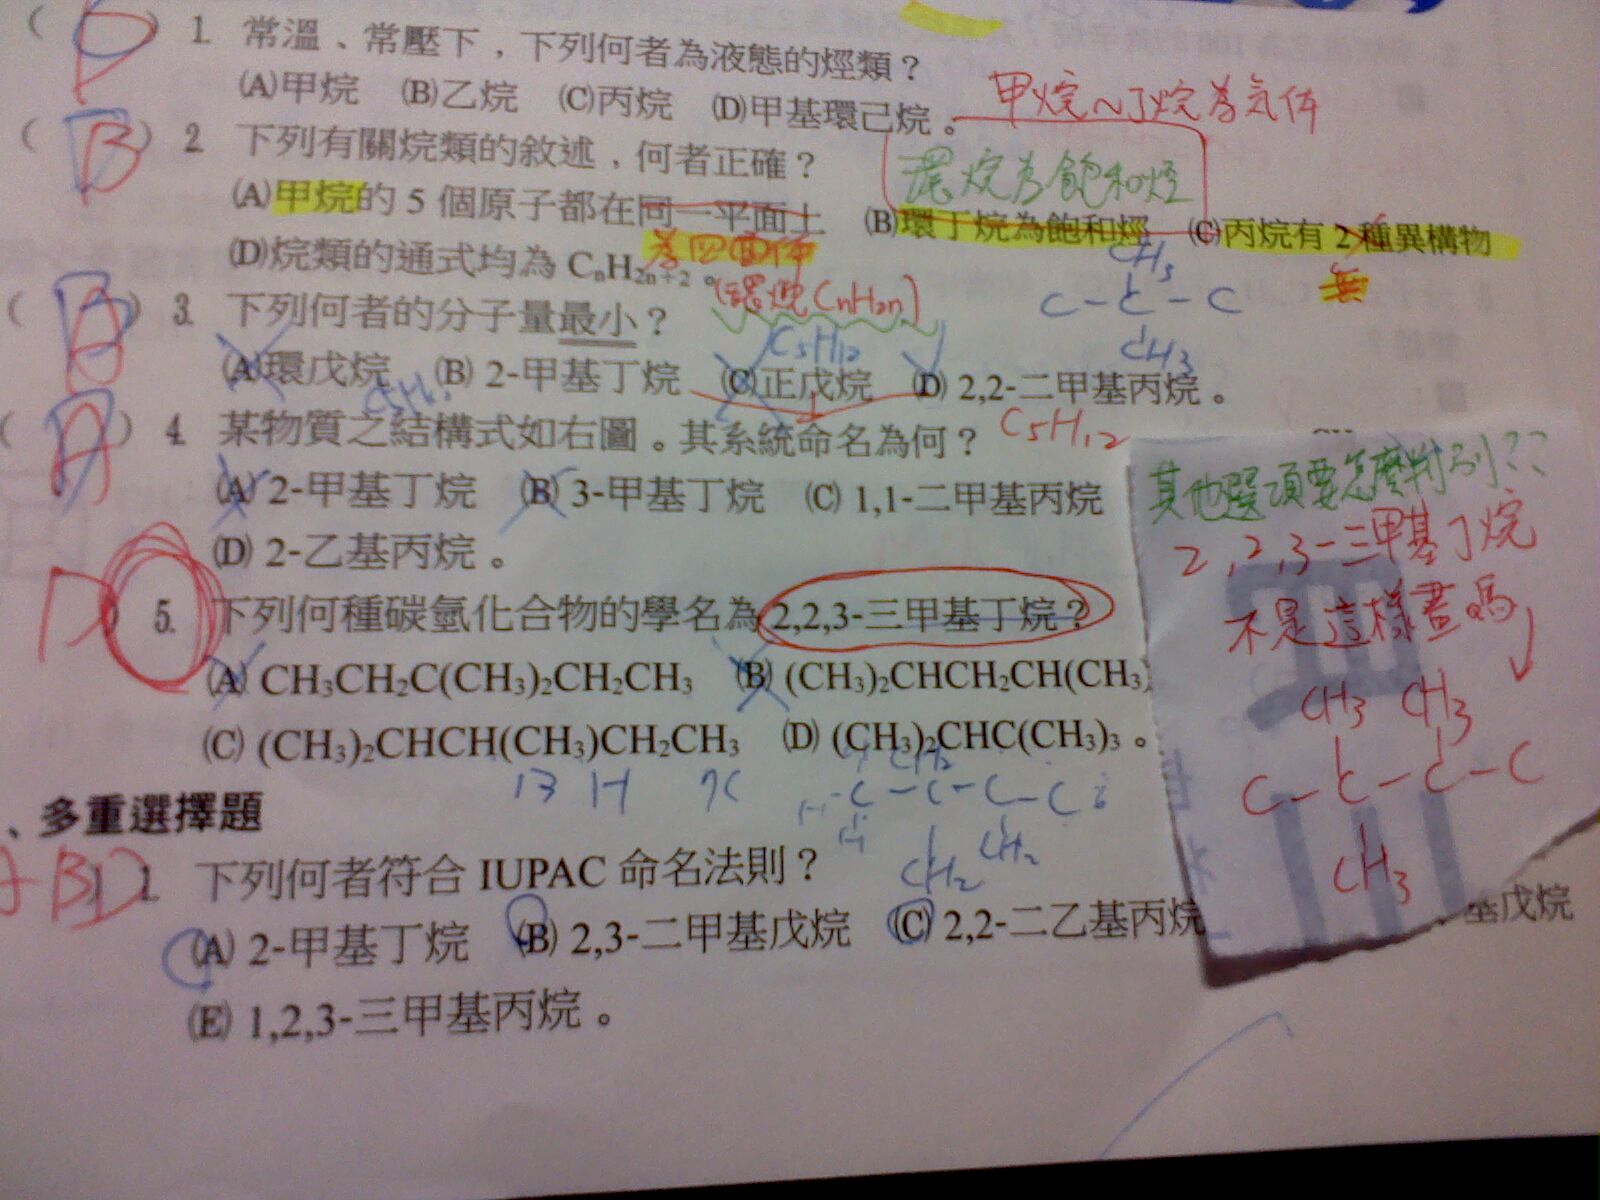 D 1. 常溫、常壓下，下列何者為液態的烴類？
(A)甲烷 (B)乙烷 (C)丙烷 (D)甲基環己烷。
甲烷~丁烷為氣体
B 2. 下列有關烷類的敘述，何者正確？
環烷為飽和烴
(A)甲烷的 5 個原子都在同一平面上 (B)環丁烷為飽和烴 (C)丙烷有 2 種異構物
為四面体
無
(D)烷類的通式均為 CnH2n+2。
(環烷 CnH2n)
CH3
C-C-C
CH3
3. 下列何者的分子量最小？
C5H12
(A)環戊烷 (B) 2-甲基丁烷 (C)正戊烷 (D) 2,2-二甲基丙烷。
C5H12
A 4. 某物質之結構式如右圖。其系統命名為何？
(A) 2-甲基丁烷 (B) 3-甲基丁烷 (C) 1,1-二甲基丙烷
(D) 2-乙基丙烷。
D 5. 下列何種碳氫化合物的學名為 2,2,3-三甲基丁烷？
(A) CH3CH2C(CH3)2CH2CH3 (B) (CH3)2CHCH2CH(CH3)
(C) (CH3)2CHCH(CH3)CH2CH3 (D) (CH3)2CHC(CH3)3。
C-C-C-C
CH2 CH2
其他選項要怎麼判別??
2,2,3-三甲基丁烷
不是這樣畫嗎
CH3 CH3
C-C-C-C
CH3
、多重選擇題
ABD 1. 下列何者符合 IUPAC 命名法則？
(A) 2-甲基丁烷 (B) 2,3-二甲基戊烷 (C) 2,2-二乙基丙烷 基戊烷
(E) 1,2,3-三甲基丙烷。